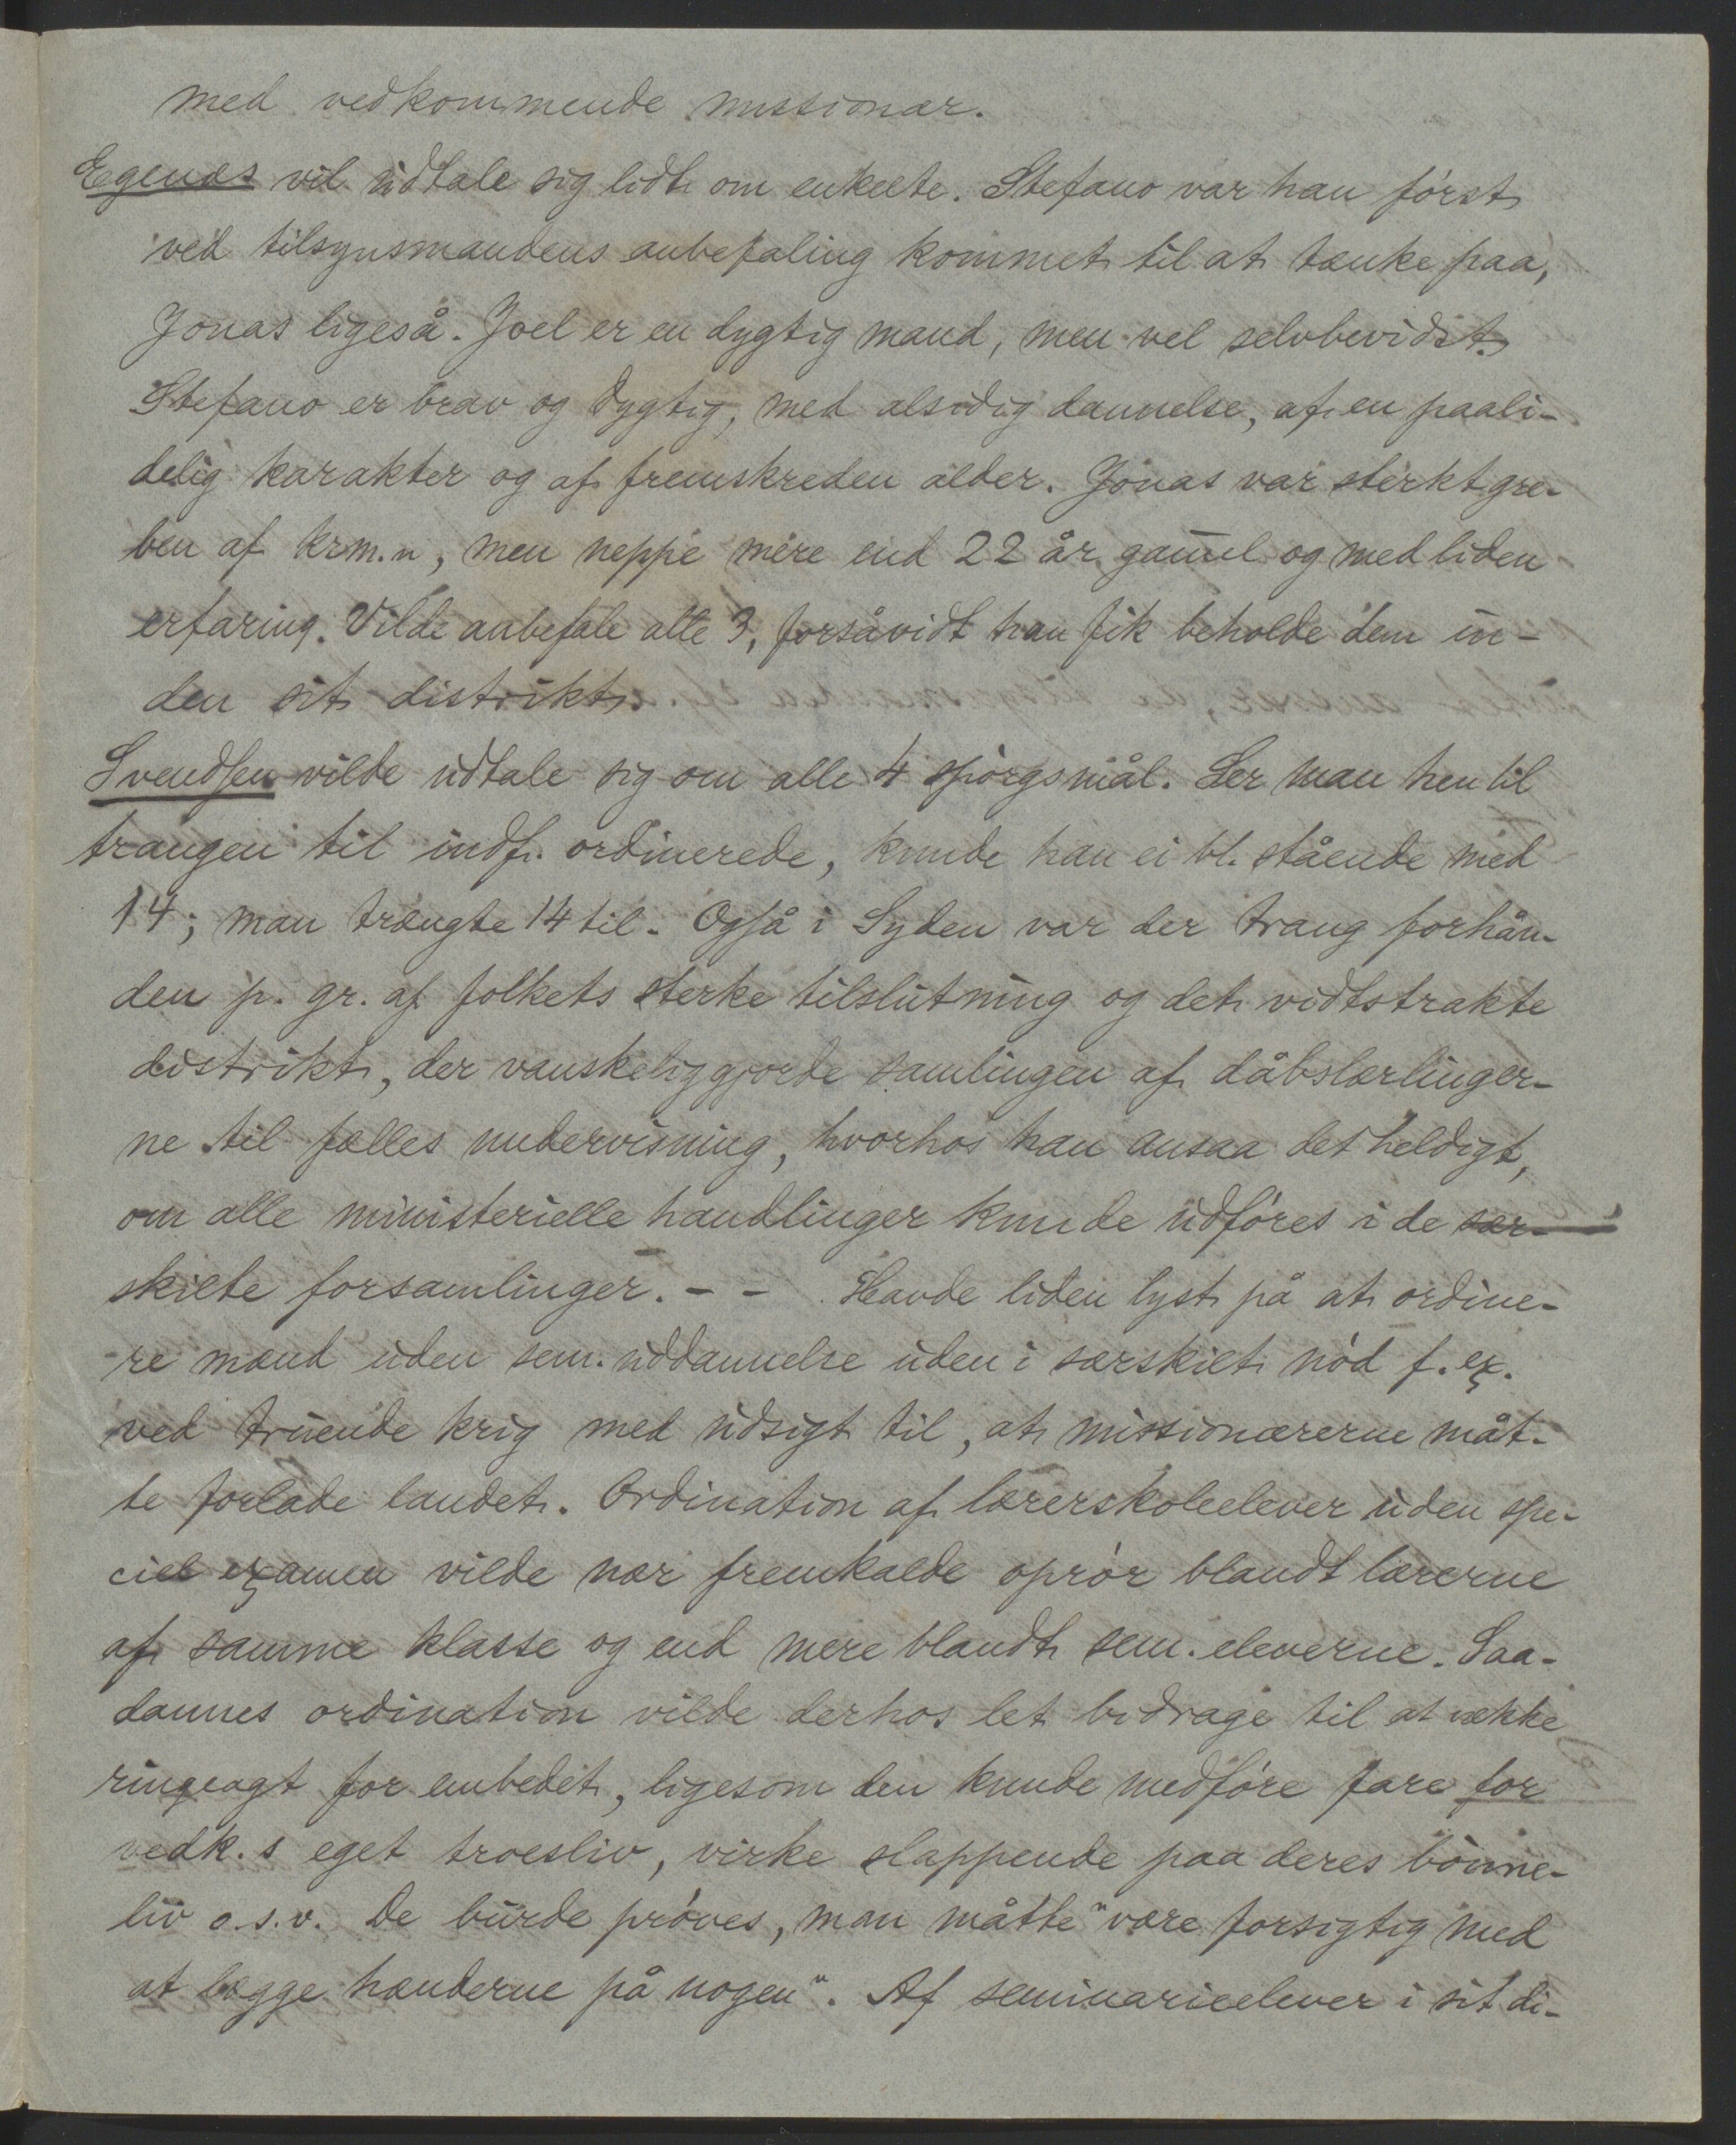 med vedkommende missionær.
Egenæs vil udtale sig lidt om enkelte. Stefano var han först
ved tilsynsmandens anbefaling kommet til at tænke paa,
Jonas ligeså. Joel er en dygtig mand, men vel selvbevidst.
Stefano er brav og dygtig, med alsidig dannelse, af en paali-
delig karakter og af fremskreden alder. Jonas var sterkt gre-
ben af krm.n, men neppe mere end 22 år gam̅el og med liden
erfaring. Vilde anbefale alle 3, forsåvidt han fik beholde dem in-
den sit distrikt.
Svendsen vilde udtale sig om alle 4 spörgsmål. Ser man hen til
trangen til indf. ordinerede, kunde han ei bl. stående med
14; man trængte 14 til. Også i Syden var der trang forhån-
den p. gr. af folkets sterke tilslutning og det vidtstrakte
distrikt, der vanskeliggjorde samlingen af dåbslærlinger-
ne til fælles undervisning, hvorhos han ansaa det heldigt,
om alle ministerielle handlinger kunde udföres i de sær-
skilte forsamlinger. - - Havde liden lyst på at ordine-
re mænd uden sem. uddannelse uden i særskilt nöd f. ex.
ved truende krig med udsigt til, at missionærerne måt-
te forlade landet. Ordination af lærerskoleelever uden spe-
ciel examen vilde nær fremkalde oprör blandt lærerne
af samme klasse og end mere blandt sem. eleverne. Saa-
dannes ordination vilde derhos let bidrage til at vække
ringeagt for embedet, ligesom den kunde medföre fare for
vedk.s eget troesliv, virke slappende paa deres bönne-
liv o.s.v. De burde pröves, man måtte "være forsigtig med
at lægge hænderne på nogen". Af seminarieelever i sit di-